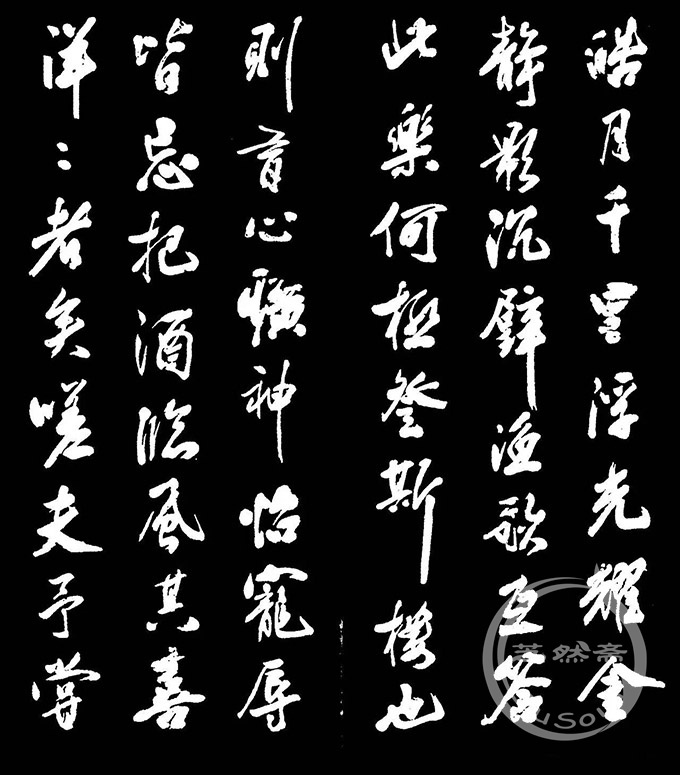 皓月千里浮光耀金
静影沉璧漁歌互答
此樂何極登斯樓也
則有心曠神怡寵辱
皆忘把酒臨風其喜
洋〻者矣嗟夫予嘗